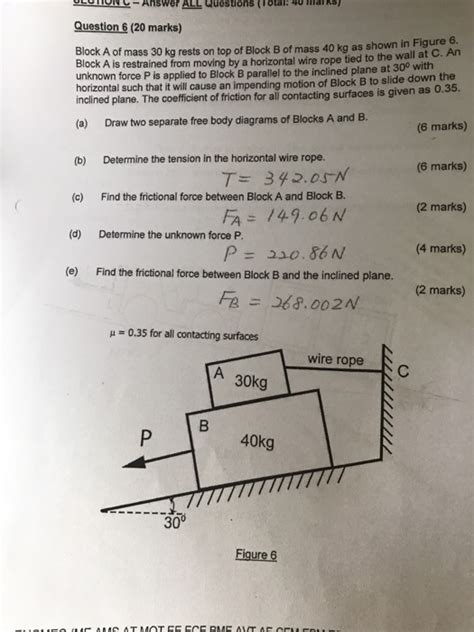 SECTION C – Answer ALL Questions (Total: 40 marks)
Question 6 (20 marks)
Block A of mass 30 kg rests on top of Block B of mass 40 kg as shown in Figure 6.
Block A is restrained from moving by a horizontal wire rope tied to the wall at C. An
unknown force P is applied to Block B parallel to the inclined plane at 30⁰ with
horizontal such that it will cause an impending motion of Block B to slide down the
inclined plane. The coefficient of friction for all contacting surfaces is given as 0.35.
(a) Draw two separate free body diagrams of Blocks A and B.
(6 marks)
(b) Determine the tension in the horizontal wire rope.
(6 marks)
T = 342.05N
(c) Find the frictional force between Block A and Block B.
(2 marks)
FA = 149.06N
(d) Determine the unknown force P.
(4 marks)
P = 220.86N
(e) Find the frictional force between Block B and the inclined plane.
(2 marks)
FB = 268.002N
μ = 0.35 for all contacting surfaces
wire rope
A
30kg
C
B
40kg
P
30⁰
Figure 6